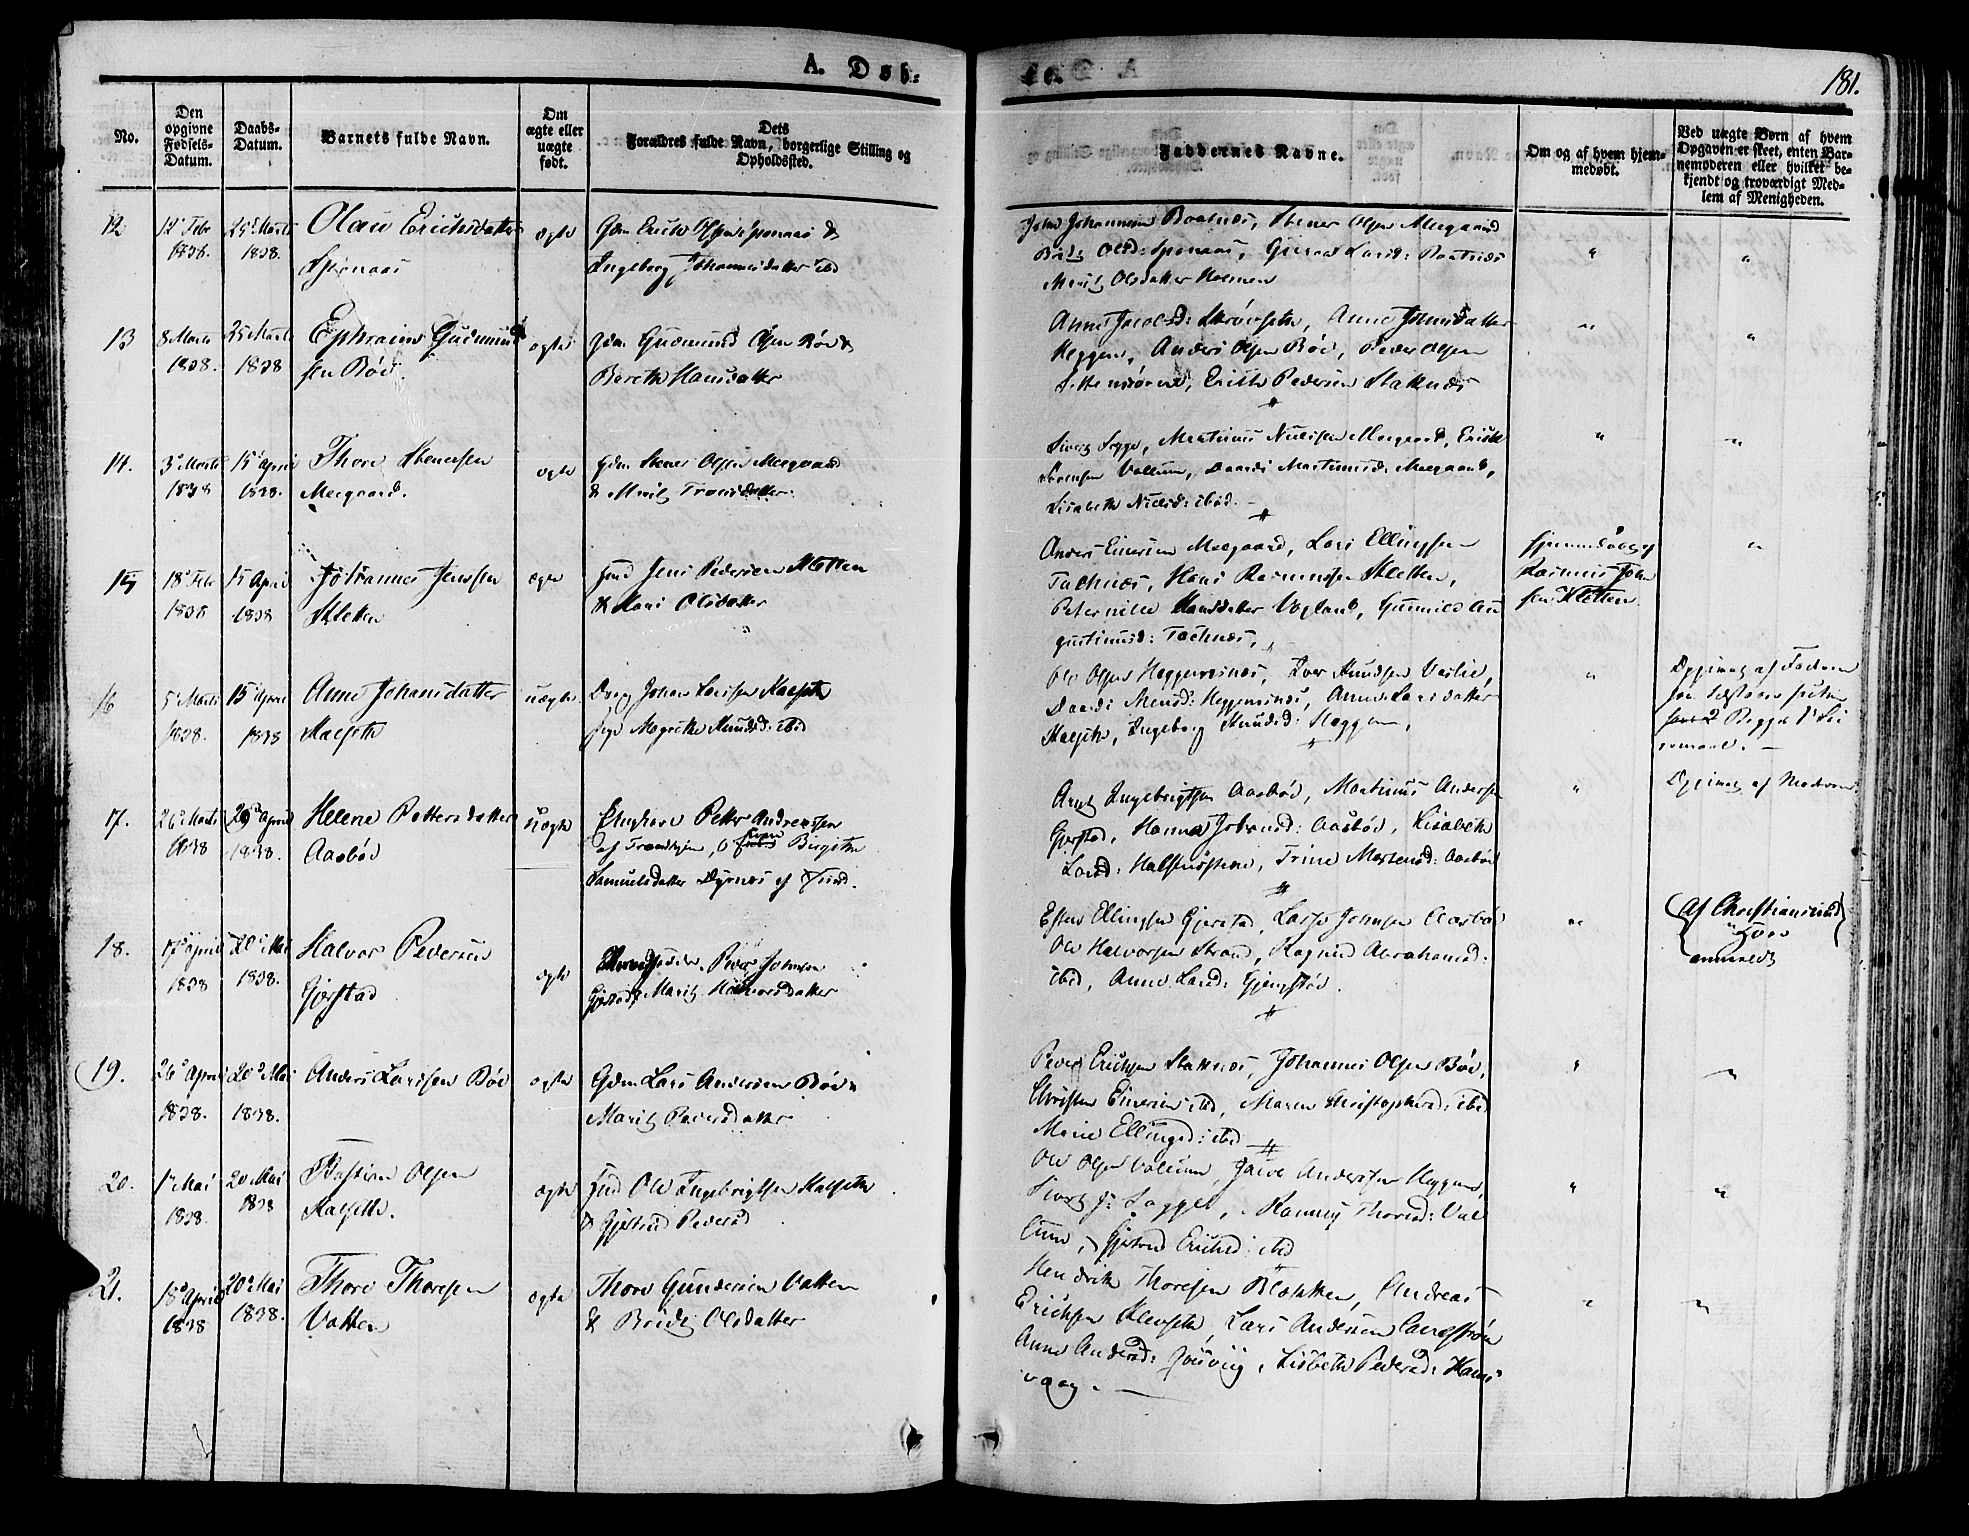 A. Døb=
181.
No.
Den opgivne Fødsels-Datum.
Daabs-Datum.
Barnets fulde Navn.
Om ægte eller uægte født.
Dets Forældres fulde Navn, borgerlige Stilling og Opholdssted.
Faddernes Navne.
Om og af hvem hjemmedøbt.
Ved uægte Børn af hvem Opgaven er skeet, enten Barnemoderen eller hvilket bekjendt og troværdigt Medlem af Menigheden.
12
12 Febr 1838.
25 Marts 1838.
Olau Erichsdatter
ægte
Gdm Erich Olsen Sponaas &
Ingeborg Johannesdatter ibd
Sponaas
John Johannesen Boatnæs, Stener Olsen Meegaard
Olsd: Sponaas, Larsd: Baatnæs
Marit Olsdatter Holmen
"
"
13
8 Marts 1838.
25 Marts 1838
Ephraim Gudmund
sen Bøe.
ægte
Gdm Gudmund Olsen Böe &
Bereth Hansdatter
Anne Jacobsd: Anne Johnsdatter
Heggem, Anders Olsen Böe, Peder Olsen
Erich Pedersen Staknæs
"
"
14.
3 Marts 1838
15 April 1838.
Thore Stenersen
Meegaard.
ægte
Gdm Stener Olsen Meegaard
& Marit Tronsdatter
Sivert Segge, Martinus Nielsen Meegaard, Erich
Sørensen Vollum, Daardi Martinusd: Meegaard,
Lisabeth Nielsd: ibid. -
"
"
15
18 Febr 1838
15 April 1838
Johannes Jenssen
Kletten
ægte
Jens Pedersen Kletten
& Kari Olsdatter
Anders Einersen Meegaard, Lars Ellingsen
Tacknæs, Hans Rasmussen Kletten,
Peternille Hansdatter Vogland, Gunnild Au
gustinusd: Tacknæs,
hjemmedøbt af
Rasmus John
sen Kletten.
"
16
5 Marts 1838.
15 April 1838
Anne Johansdatter
Kalseth
uægte
Johan Larssen Kalseth
Pige Magrethe Knudsd: ibid
Ole Olsen Heggemsnæs, Iver Knudsen Vaslie,
Daardi Monsd: Heggemsnæs, Anne Larsdatter
Kalseth, Ingeborg Knudsd: Heggem,
"
Opgivet af Faderen
Begges 1ste Lei
ermaal. -
17.
26 Marts 1838
29 April 1838.
Helene Pettersdatter
Aasbøe
Uægte
Petter Andreassen
af Trondhjem, & Birgithe
Samuelsdatter Dyrnæs af
Arnt Ingebrigtsen Aasbøe, Martinus Andersen
Gjerstad, Hanna Johnsd: Aasbøe, Lisabeth
Larsd: Trine Mortensd: Aasbøe
"
Opgivet af Moderen
18.
17 April 1838
20 Mai 1838.
Halvor Pedersen
Gjerstad
ægte
Peder Johnsen
Gjerstad & Marit Halvorsdatter
Esten Ellingsen Gjerstad, Lasse Johnsen Aasbøe
Ole Halvorsen Strand, Ragnild Abrahamsd:
ibid, Anne Larsd: Gjengstøe.
"
(af Christiansund)
anmeldt
19.
26 April 1838.
20 Mai 1838.
Anders Larssen Böe
ægte
Gdm Lars Andersen Böe &
Marit Pedersdatter
Peder Erichsen Staknæs, Johannes Olsen Böe,
Christen Einersen ibd, Maren Christophersd: ibid
Marie Ellingsd: ibd
"
"
20.
1 Mai 1838.
20 Mai 1838
Bastian Olsen
Kalseth.
ægte
Ole Ingebrigtsen Kalseth
& Gjertrud Pedersd
Ole Olsen Vollum, Jacob Andersen Heggem,
Sivert J: Sagge, Ranneg Thoresd: Vol
lum, Gjertrud Erichsd: ibid
"
"
21.
18 April 1838
20 Mai 1838.
Thore Thoresen
Vatten
ægte
Thore Gundersen Vatten
& Brudi Olsdatter
Hendrik Thoresen Blakken, Andreas
Erichsen Klevseth, Lars Andersen
Anne Andersd: Lisbeth Pedersd: Hans
vaag. -
"
"